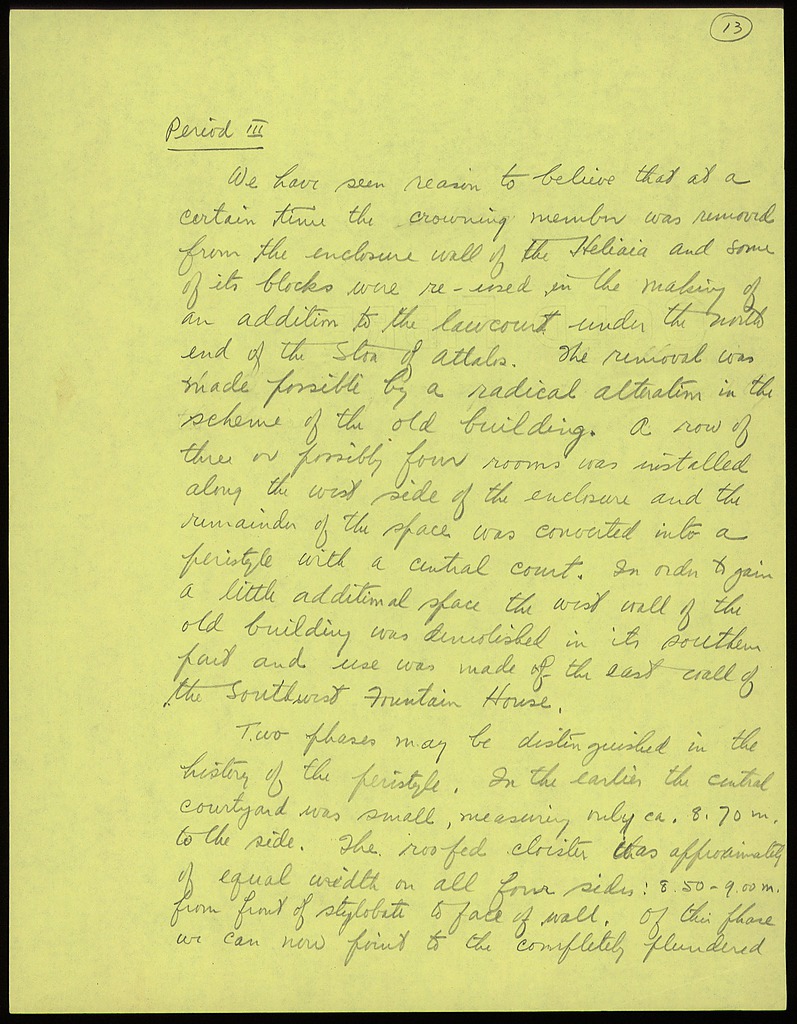 13
Period III
We have seen reason to believe that at a
certain time the crowning member was removed
from the enclosure wall of the Heliaia and some
of its blocks were re-used in the making of
an addition to the lawcourt under the north
end of the Stoa of Attalos. The removal was
made possible by a radical alteration in the
scheme of the old building. A row of
three or possibly four rooms was installed
along the west side of the enclosure and the
remainder of the space was converted into a
peristyle with a central court. In order to gain
a little additional space the west wall of the
old building was demolished in its southern
part and use was made of the east wall of
the Southwest Fountain House.
Two phases may be distinguished in the
history of the peristyle. In the earlier the central
courtyard was small, measuring only ca. 8.70 m.
to the side. The roofed cloister was approximately
of equal width on all four sides: 8.50-9.00 m.
from front of stylobate to face of wall. Of this phase
we can now point to the completely plundered